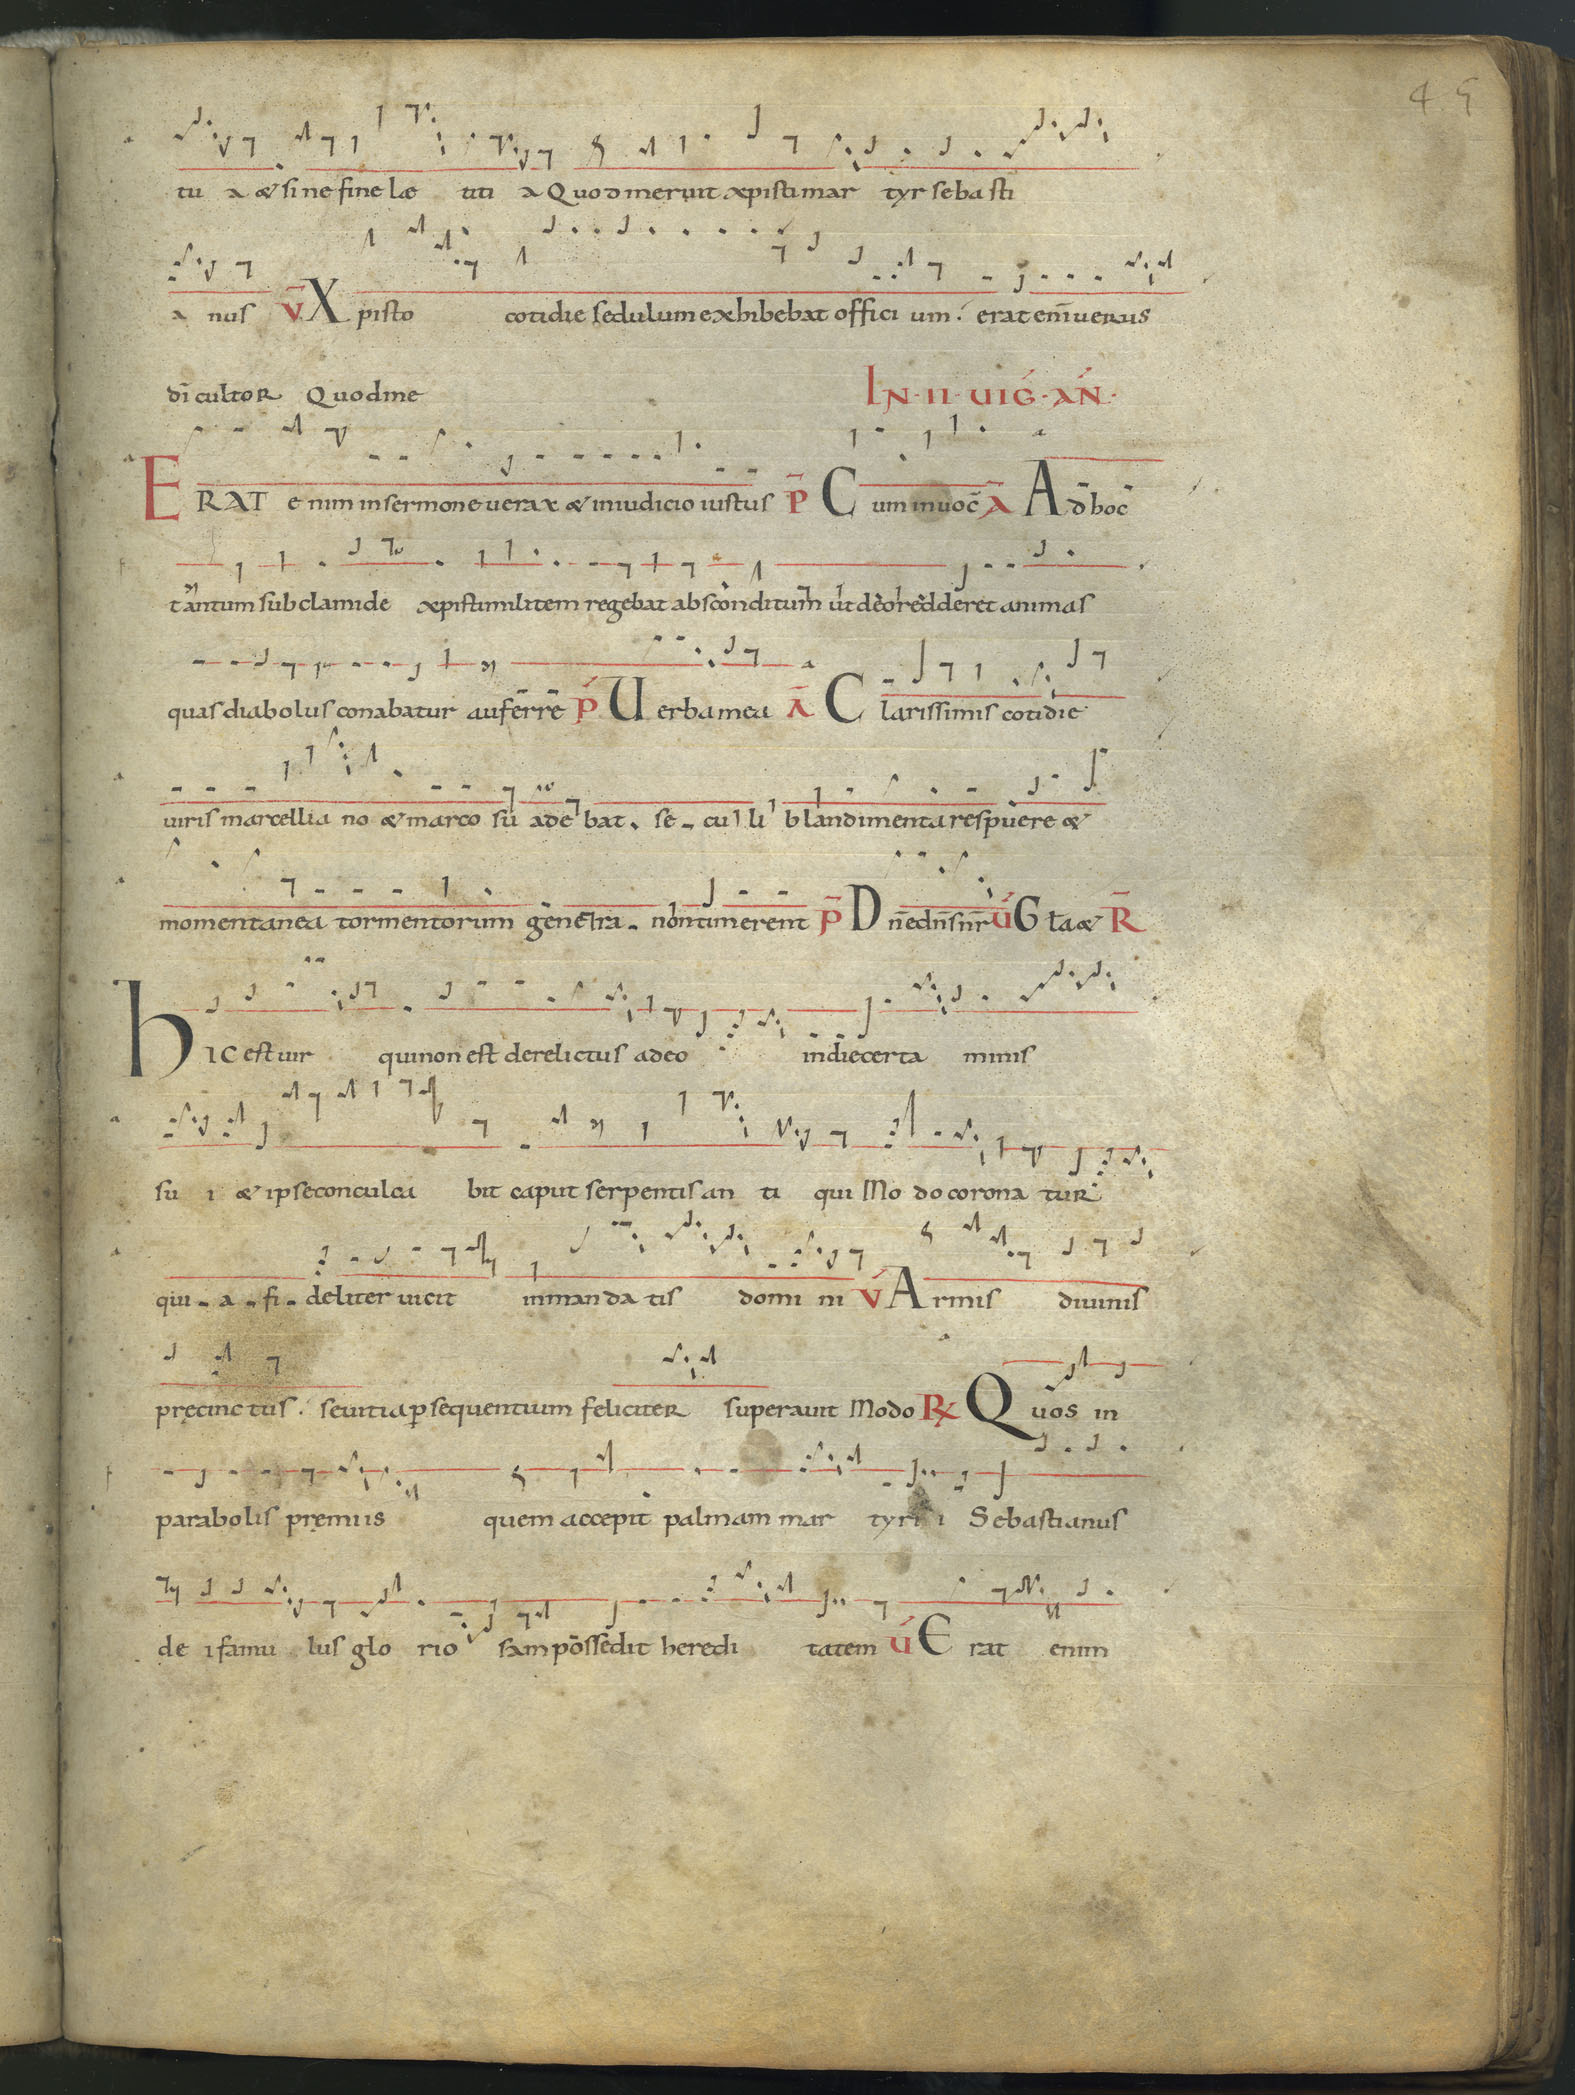 45
tu a & sine fine læ titi a Quod meruit xpisti mar tyr sebasti
a nus V̄ Xpisto cotidie sedulum exhibebat offici um. erat eni̅ uerus
di̅ cultor Quod me IN · II · UIG̅ · AN̅ ·
ERAT enim in sermone uerax & in iudicio iustus P̄ Cum inuoc̅ Ā Ad hoc
tantum sub clamide xpisti militem regebat absconditum ut deo redderet animas
quas diabolus conabatur auferre P̄ Uerba mea Ā Clarissimis cotidie
uiris marcellia no & marco suadebat. se-culi blandimenta respuere &
momentanea tormentorum genera. non timerent P̄ Dn̅e dn̅s nr̅ V̄ Gl̅a & R̄
hIC est uir qui non est derelictus a deo in die certa minis
su i & ipse conculca bit caput serpentis an ti qui Modo corona tur
qui-a-fi-deliter uicit in manda tis domi ni V̄ Armis diuinis
pręcinc tus. seuitia p̲sequentium feliciter superauit Modo R̸ Quos in
parabolis pręmiis quem accepit palmam mar tyri i Sebastianus
de i famu lus glo rio sam possedit heredi tatem V̄ Erat enim